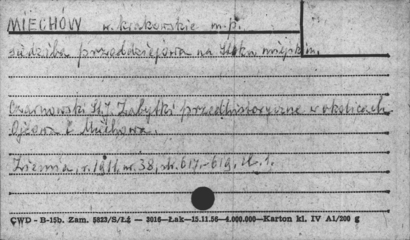 MIECHÓW w. krakowskie m.p.
siedziba przeddziejowa na stoku miejskim.
Czarnowski St. J. Zabytki przedhistoryczne w okolicach
Ojcowa i Miechowa.
Ziemia, r. 1911, nr. 38, str. 617-619, il. 1.
ÇWD - B-15b. Zam. 5823/S/Łż — 3016—Łak—15.11.56—4.000.000—Karton kl. IV A1/200 g